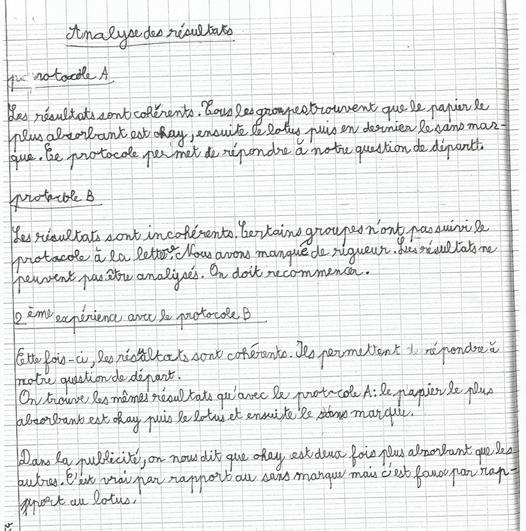 Analyse des résultats
protocole A
Les résultats sont cohérents. Tous les groupes trouvent que le papier le
plus absorbant est okay, ensuite le lotus puis en dernier le sans mar-
que. Ce protocole permet de répondre à notre question de départ.
protocole B
Les résultats sont incohérents. Certains groupes n'ont pas suivi le
protocole à la lettre. Nous avons manqué de rigueur. Les résultats ne
peuvent pas être analysés. On doit recommencer.
2ème expérience avec le protocole B
Cette fois-ci, les résultats sont cohérents. Ils permettent de répondre à
notre question de départ.
On trouve les mêmes résultats qu'avec le protocole A: le papier le plus
absorbant est okay puis le lotus et ensuite le sans marque.
Dans la publicité, on nous dit que okay est deux fois plus absorbant que les
autres. C'est vrai par rapport au sans marque mais c'est faux par rap-
pport au lotus.